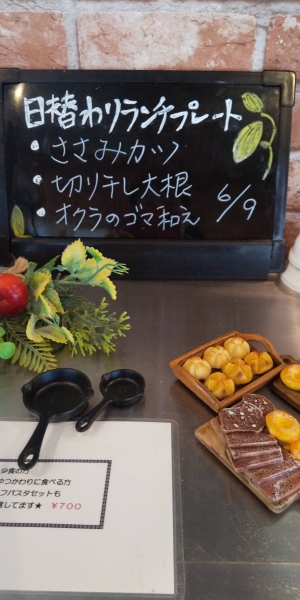 日替わりランチプレート
・ささみカツ
・切り干し大根
・オクラのゴマ和え 6/9
少食の方
やつかわりに食べる方
フパスタセットも
意してます★ ¥700